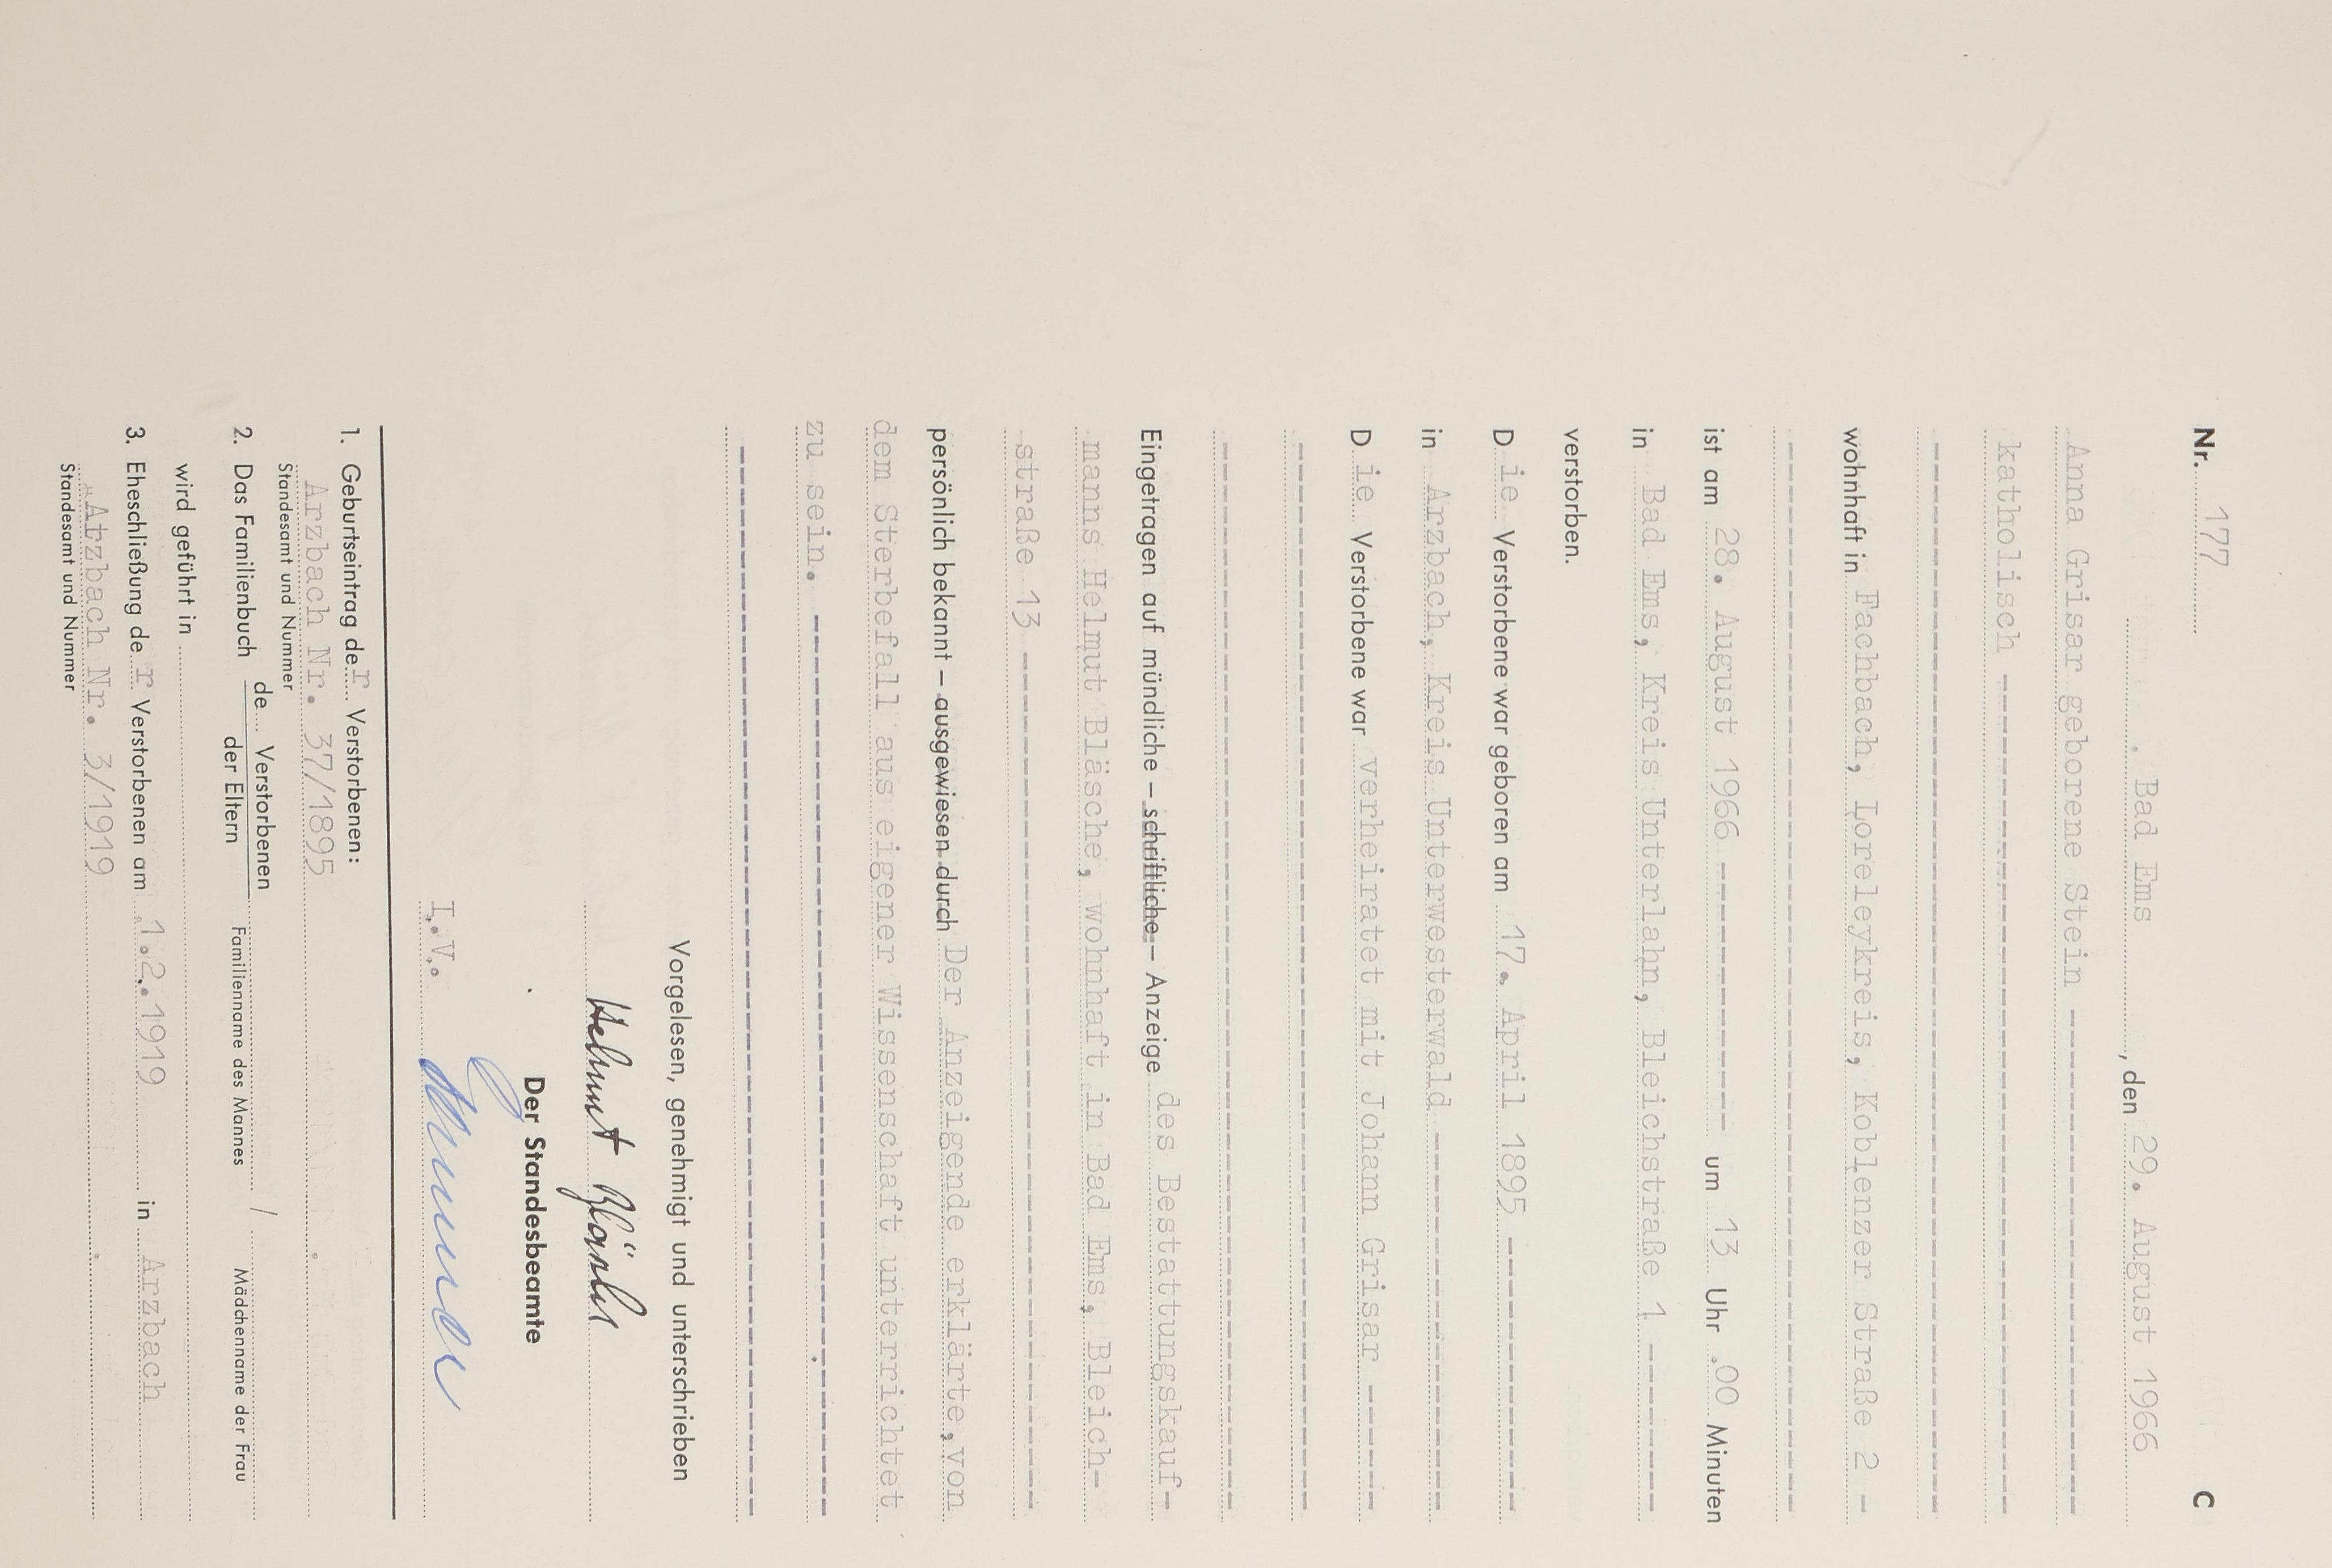 Nr. 177 C
Bad Ems, den 29. August 1966
Anna Grisar geborene Stein
katholisch
wohnhaft in Fachbach, Loreleykreis, Koblenzer Straße 2 -
ist am 28. August 1966 um 13 Uhr 00 Minuten
in Bad Ems, Kreis Unterlahn, Bleichstraße 1
verstorben.
Die Verstorbene war geboren am 17. April 1895
in Arzbach, Kreis Unterwesterwald
Die Verstorbene war verheiratet mit Johann Grisar
Eingetragen auf mündliche – schriftliche – Anzeige des Bestattungskauf-
manns Helmut Bläsche, wohnhaft in Bad Ems, Bleich-
straße 13
persönlich bekannt – ausgewiesen durch Der Anzeigende erklärte, von
dem Sterbefall aus eigener Wissenschaft unterrichtet
zu sein.
Vorgelesen, genehmigt und unterschrieben
Helmut Bläsche
Der Standesbeamte
I.V.
1. Geburtseintrag der Verstorbenen:
Arzbach Nr. 37/1895
Standesamt und Nummer
2. Das Familienbuch de Verstorbenen
der Eltern
Familienname des Mannes / Mädchenname der Frau
wird geführt in
3. Eheschließung der Verstorbenen am 1.2.1919 in Arzbach
Atzbach Nr. 3/1919
Standesamt und Nummer